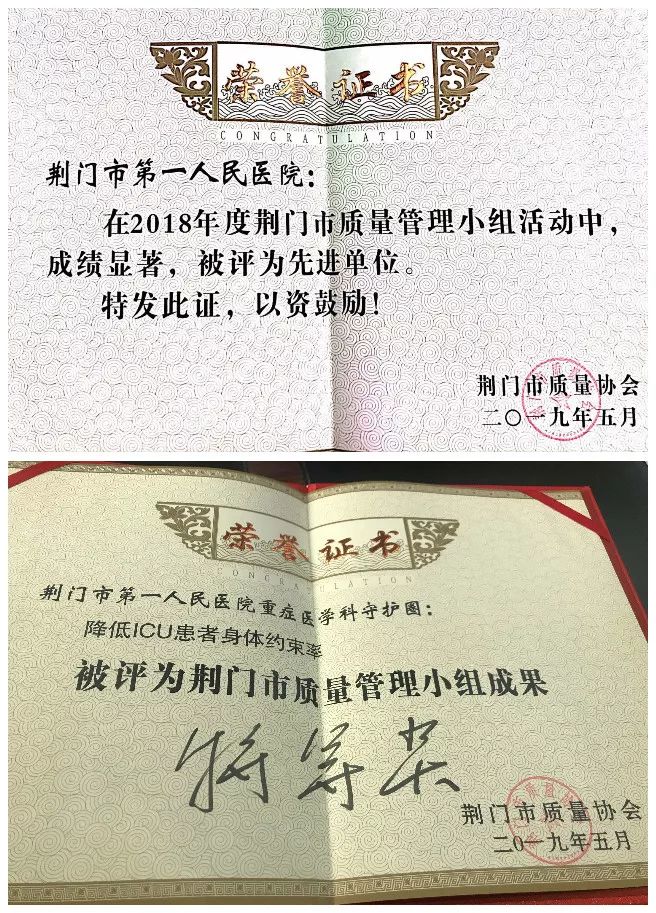 荣誉证书
CONGRATULATION
荆门市第一人民医院：
在2018年度荆门市质量管理小组活动中，
成绩显著，被评为先进单位。
特发此证，以资鼓励！
荆门市质量协会
二〇一九年五月
荣誉证书
ONGRATULATION
荆门市第一人民医院重症医学科守护圈：
降低ICU患者身体约束率
被评为荆门市质量管理小组成果
特等奖
荆门市质量协会
二〇一九年五月